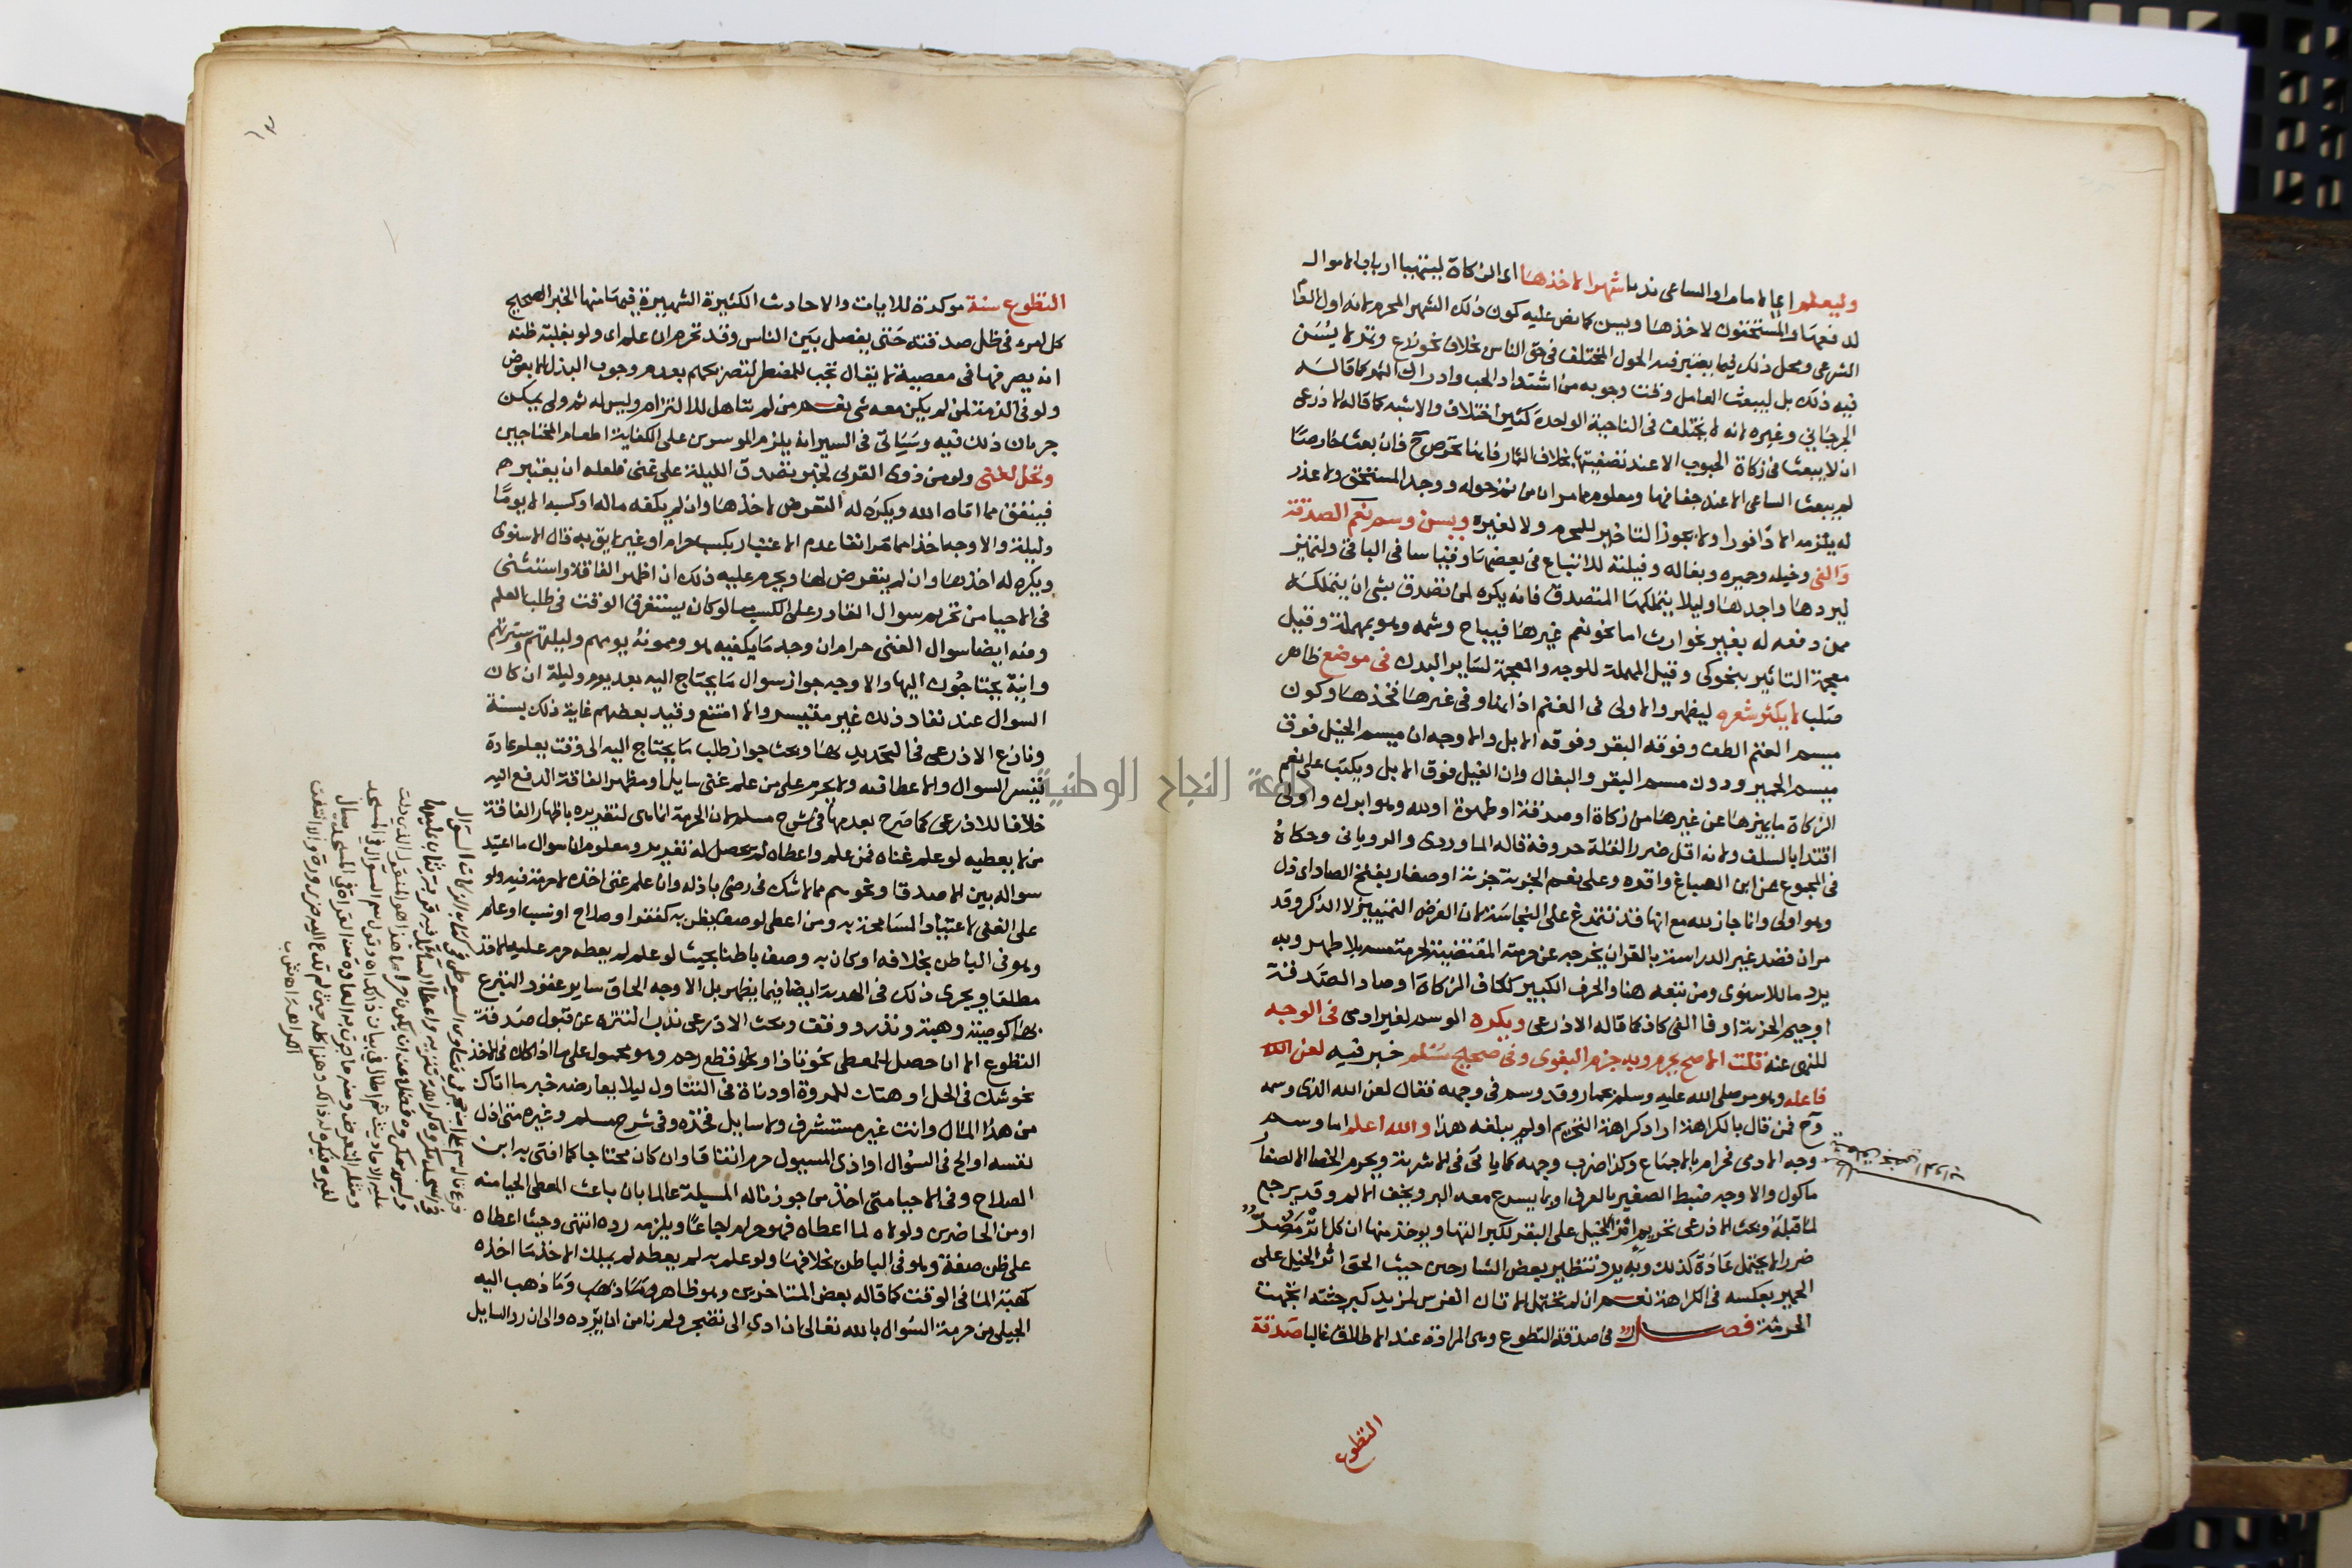 وليعلم اي الامام او الساعي ندبا شهرا لاخذها اي الزكاة ليتهيا ارباب الاموال
لدفعها والمستحقون لاخذها ويسن كما نص عليه كون ذلك الشهر المحرم لانه اول العام
الشرعي ومحل ذلك فيما يعتبر فيه الحول المختلف في حق الناس بخلاف نحو زرع وثمر لا يسن
فيه ذلك بل يبعث العامل وقت وجوبه من اشتداد الحب وادراك الثمر كما قاله
الجرجاني وغيره لانه لا يختلف في الناحية الواحدة كثير اختلاف والاشبه كما قاله الاذرعي
ان لا يبعث في زكاة الحبوب الا عند تصفيتها بخلاف الثمار فانها تخرص ح فان بعث خارصا
لم يبعث الساعي الا عند جفافها ومعلوم مما مر ان من تم حوله ووجد المستحق ولا عذر
له يلزمه الادا فورا ولا يجوز التاخير للمحرم ولا لغيره ويسن وسم نعم الصدقة
والفي وخيله وحميره وبغاله وفيلته للاتباع في بعضها وقياسا في الباقي ولتتميز
ليردها واجدها وليلا يتملكها المتصدق فانه يكره لمن تصدق بشي ان يتملكه
ممن دفعه له بغير نحو ارث اما نحو نعم غيرها فيباح وسمه وهو بمهملة وقيل
معجمة التاثير بنحو كي وقيل المهملة للوجه والمعجمة لساير البدن في موضع ظاهر
صلب لا يكثر شعره ليظهر والاولى في الغنم اذانها وفي غيرها فخذها وكون
ميسم الغنم الطف وفوقه البقر وفوقه الابل والاوجه ان ميسم الخيل فوق
ميسم الحمير ودون ميسم البقر والبغال وان الفيل فوق الابل ويكتب على نعم
الزكاة ما يميزها عن غيرها من زكاة او صدقة او طهرة او لله وهو ابرك واولى
اقتدا بالسلف ولانه اقل ضررا لقلة حروفه قاله الماوردي والروياني وحكاه
في المجموع عن ابن الصباغ واقره وعلى نعم الجزية جزية او صغار بفتح الصاد اي ذل
وهو اولى وانما جاز لله مع انها قد تتمرغ على النجاسة لان الغرض التمييز لا الذكر وقد
مر ان قصد غير الدراسة بالقران يخرجه عن حرمته المقتضية لحرمة مسه بلا طهر وبه
يرد ما للاسنوي ومن تبعه هنا والحرف الكبير ككاف الزكاة او صاد الصدقة
او جيم الجزية او فا الفي كاف كما قاله الاذرعي ويكره الوسم لغير ادمي في الوجه
للنهي عنه قلت الاصح يحرم وبه جزم البغوي وفي صحيح مسلم خبر فيه لعن الله
فاعله وهو مر صلى الله عليه وسلم بحمار وقد وسم في وجهه فقال لعن الله الذي وسمه
وح فمن قال بالكراهة اراد كراهة التحريم او لم يبلغه هذا والله اعلم اما وسم
وجه الادمي فحرام بالاجماع وكذا ضرب وجهه كما ياتي في الاشربة ويحرم الخصا الا لصغار
ماكول والاوجه ضبط الصغير بالعرف او بما يسرع معه البرو ويخف الالم وقد يرجع
لما قبله وبحث الاذرعي تحريم انزا الخيل على البقر لكبر التها ويوخذ منها ان كل انزا مضر
ضررا لا يحتمل عادة كذلك وبه يرد تنظير بعض الشارحين حيث الحق انزا الخيل على
الحمير بعكسه في الكراهة نعم ان لم تحتمل الاتان الفرس لمزيد كبر جثته اتجهت
الحرمة فصل في صدقة التطوع وهي المرادة عند الاطلاق غالبا صدقة
التطوع
التطوع سنة موكدة للايات والاحاديث الكثيرة الشهيرة فيها منها الخبر الصحيح
كل امرء في ظل صدقته حتى يفصل بين الناس وقد تحرم ان علم اي ولو بغلبة ظنه
انه يصرفها في معصية لا يقال تجب للمضطر لتصريحهم بعدم وجوب البذل الا بعوض
ولو في الذمة لمن لم يكن معه شي نعم من لم يتاهل للالتزام وليس له ثم ولي يمكن
جريان ذلك فيه وسياتي في السير انه يلزم الموسرين على الكفاية اطعام المحتاجين
وتحل لغني ولو من ذوي القربى لخبر تصدق الليلة على غني فلعله ان يعتبر ه
فينفق مما اتاه الله ويكره له التعرض لاخذها وان لم يكفه ماله او كسبه الا يوما
وليلة والاوجه اخذا مما مر انفا عدم الاعتبار بكسب حرام او غير لايق به قال الاسنوي
ويكره له اخذها وان لم يتعرض لها ويحرم عليه ذلك ان اظهر الفاقة واستثنى
في الاحيا من تحريم سوال القادر على الكسب ما لو كان يستغرق الوقت في طلب العلم
وفيه ايضا سوال الغني حرام ان وجد ما يكفيه هو وممونه يومهم وليلتهم وسترتهم
وانية يحتاجون اليها والاوجه جواز سوال ما يحتاج اليه بعد يوم وليلة ان كان
السوال عند نفاد ذلك غير متيسر والا امتنع وقيد بعضهم غاية ذلك بسنة
ونازع الاذرعي في التحديد بها وبحث جواز طلب ما يحتاج اليه الى وقت يعلم عادة
تيسر السوال والاعطا فيه ولا يحرم على من علم غني سايل او مظهر الفاقة الدفع اليه
خلافا للاذرعي كما صرح بعدمها في شرح مسلم لان الحرمة انما هي لتغريره باظهار الفاقة
من لا يعطيه لو علم غناه فمن علم واعطاه لم يحصل له تغرير ومعلوم ان سوال ما اعتيد
سواله بين الاصدقا ونحوهم مما لا شك في رضى باذله وان علم غنى اخذه لا حرمة فيه ولو
على الغني لاعتياد المسامحة به ومن اعطى لوصف يظن به كفقر او صلاح او نسب او علم
وهو في الباطن بخلافه او كان به وصف باطنا بحيث لو علم لم يعطه حرم عليه الاخذ
مطلقا ويجري ذلك في الهدية ايضا فيما يظهر بل الاوجه الحاق ساير عقود التبرع
بها كوصية وهبة ونذر ووقف وبحث الاذرعي ندب التنزه عن قبول صدقة
التطوع الا ان حصل للمعطي نحو تاذ او نحو قطع رحم وهو محمول على ما اذا كان في الاخذ
نحو شك في الحل او هتك للمروة او دناة في التناول ليلا يعارضه خبر ما اتاك
من هذا المال وانت غير مستشرف ولا سايل فخذه وفي شرح مسلم وغيره متى اذل
نفسه او الح في السوال او اذى المسيول حرم اتفاقا وان كان محتاجا كما افتى به ابن
الصلاح وفي الاحيا متى اخذ من جوز ناله المسيلة عالما بان باعث المعطي الحيا منه
او من الحاضرين ولولاه لما اعطاه فهو حرام اجماعا ويلزمه رده انتهى وحيث اعطاه
على ظن صفة وهو في الباطن بخلافها ولو علم به لم يعطه لم يملك الاخذ ما اخذه
كهبة الما في الوقت كما قاله بعض المتاخرين وهو ظاهر وما ذهب اليه
الحليمي من حرمة السوال بالله تعالى ان ادي الى تضجر ولم يامن ان يرده والى ان رد السايل